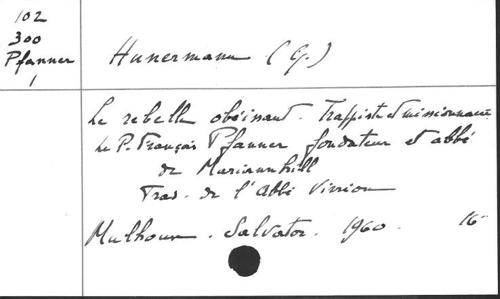 102
300
Pfanner
1
Hunermann (G.)
Le rebelle obéissant. Trappiste et missionnaire
Le P. François Pfanner fondateur et abbé
de Mariannhill
Trad. de l'Abbé Virrion
Mulhouse. Salvator. 1960. 16°